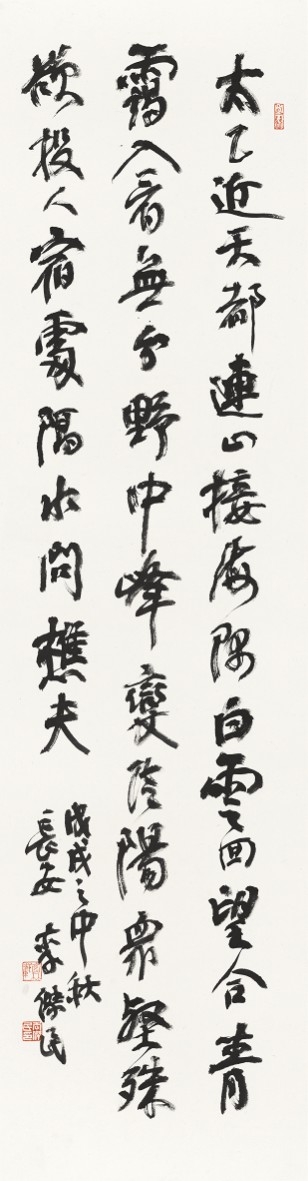 太乙近天都連山接海隅白雲回望合青
靄入看無分野中峰變陰陽眾壑殊
欲投人宿處隔水問樵夫
戊戌之中秋
長安 李傑民